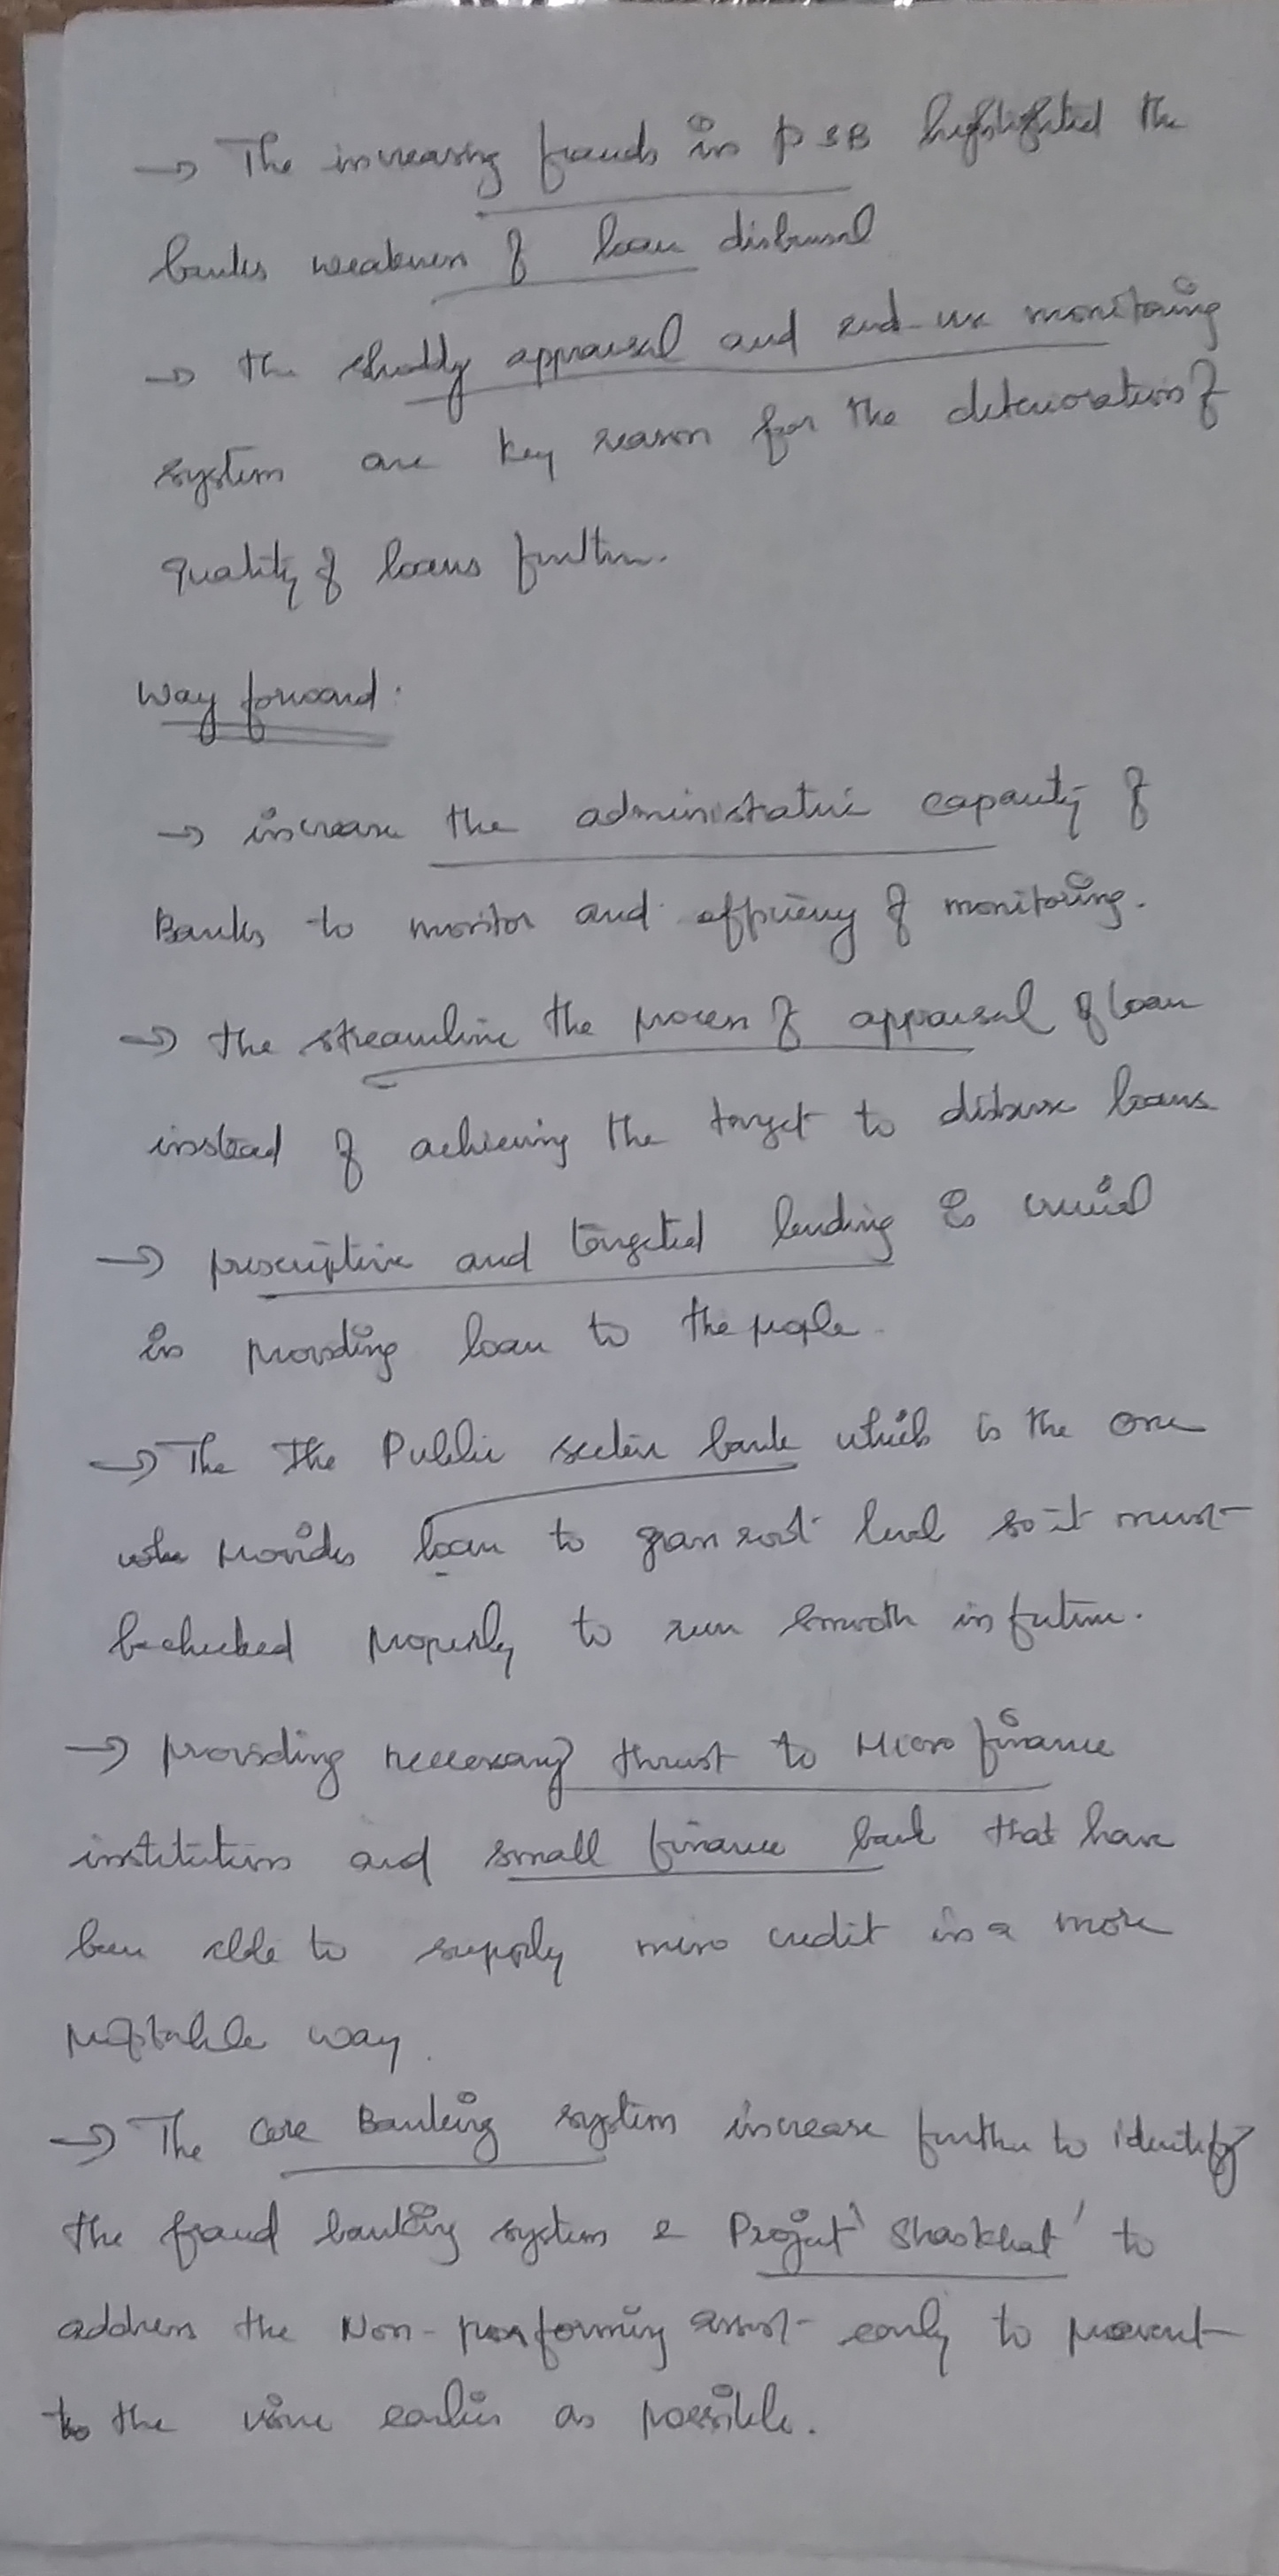 → The increasing frauds in PSB highlighted the
banks weakness of loan disbursal
→ the shoddy appraisal and end-use monitoring
system are key reason for the deterioration of
quality of loans further.
Way forward:
→ increase the administrative capacity of
Banks to monitor and efficiency of monitoring.
→ the streamline the process of appraisal of loan
instead of achieving the target to disburse loans
→ prescriptive and targeted lending is crucial
in providing loan to the people.
→ The The Public sector bank which is the one
who provides loan to grass root level so it must
be checked properly to run smooth in future.
→ providing necessary thrust to Micro finance
institutions and small finance bank that have
been able to supply micro credit in a more
profitable way.
→ The Core Banking system increase further to identify
the fraud banking system & Project 'Shaskhat' to
address the Non-performing asset early to prevent
to the earlier as possible.